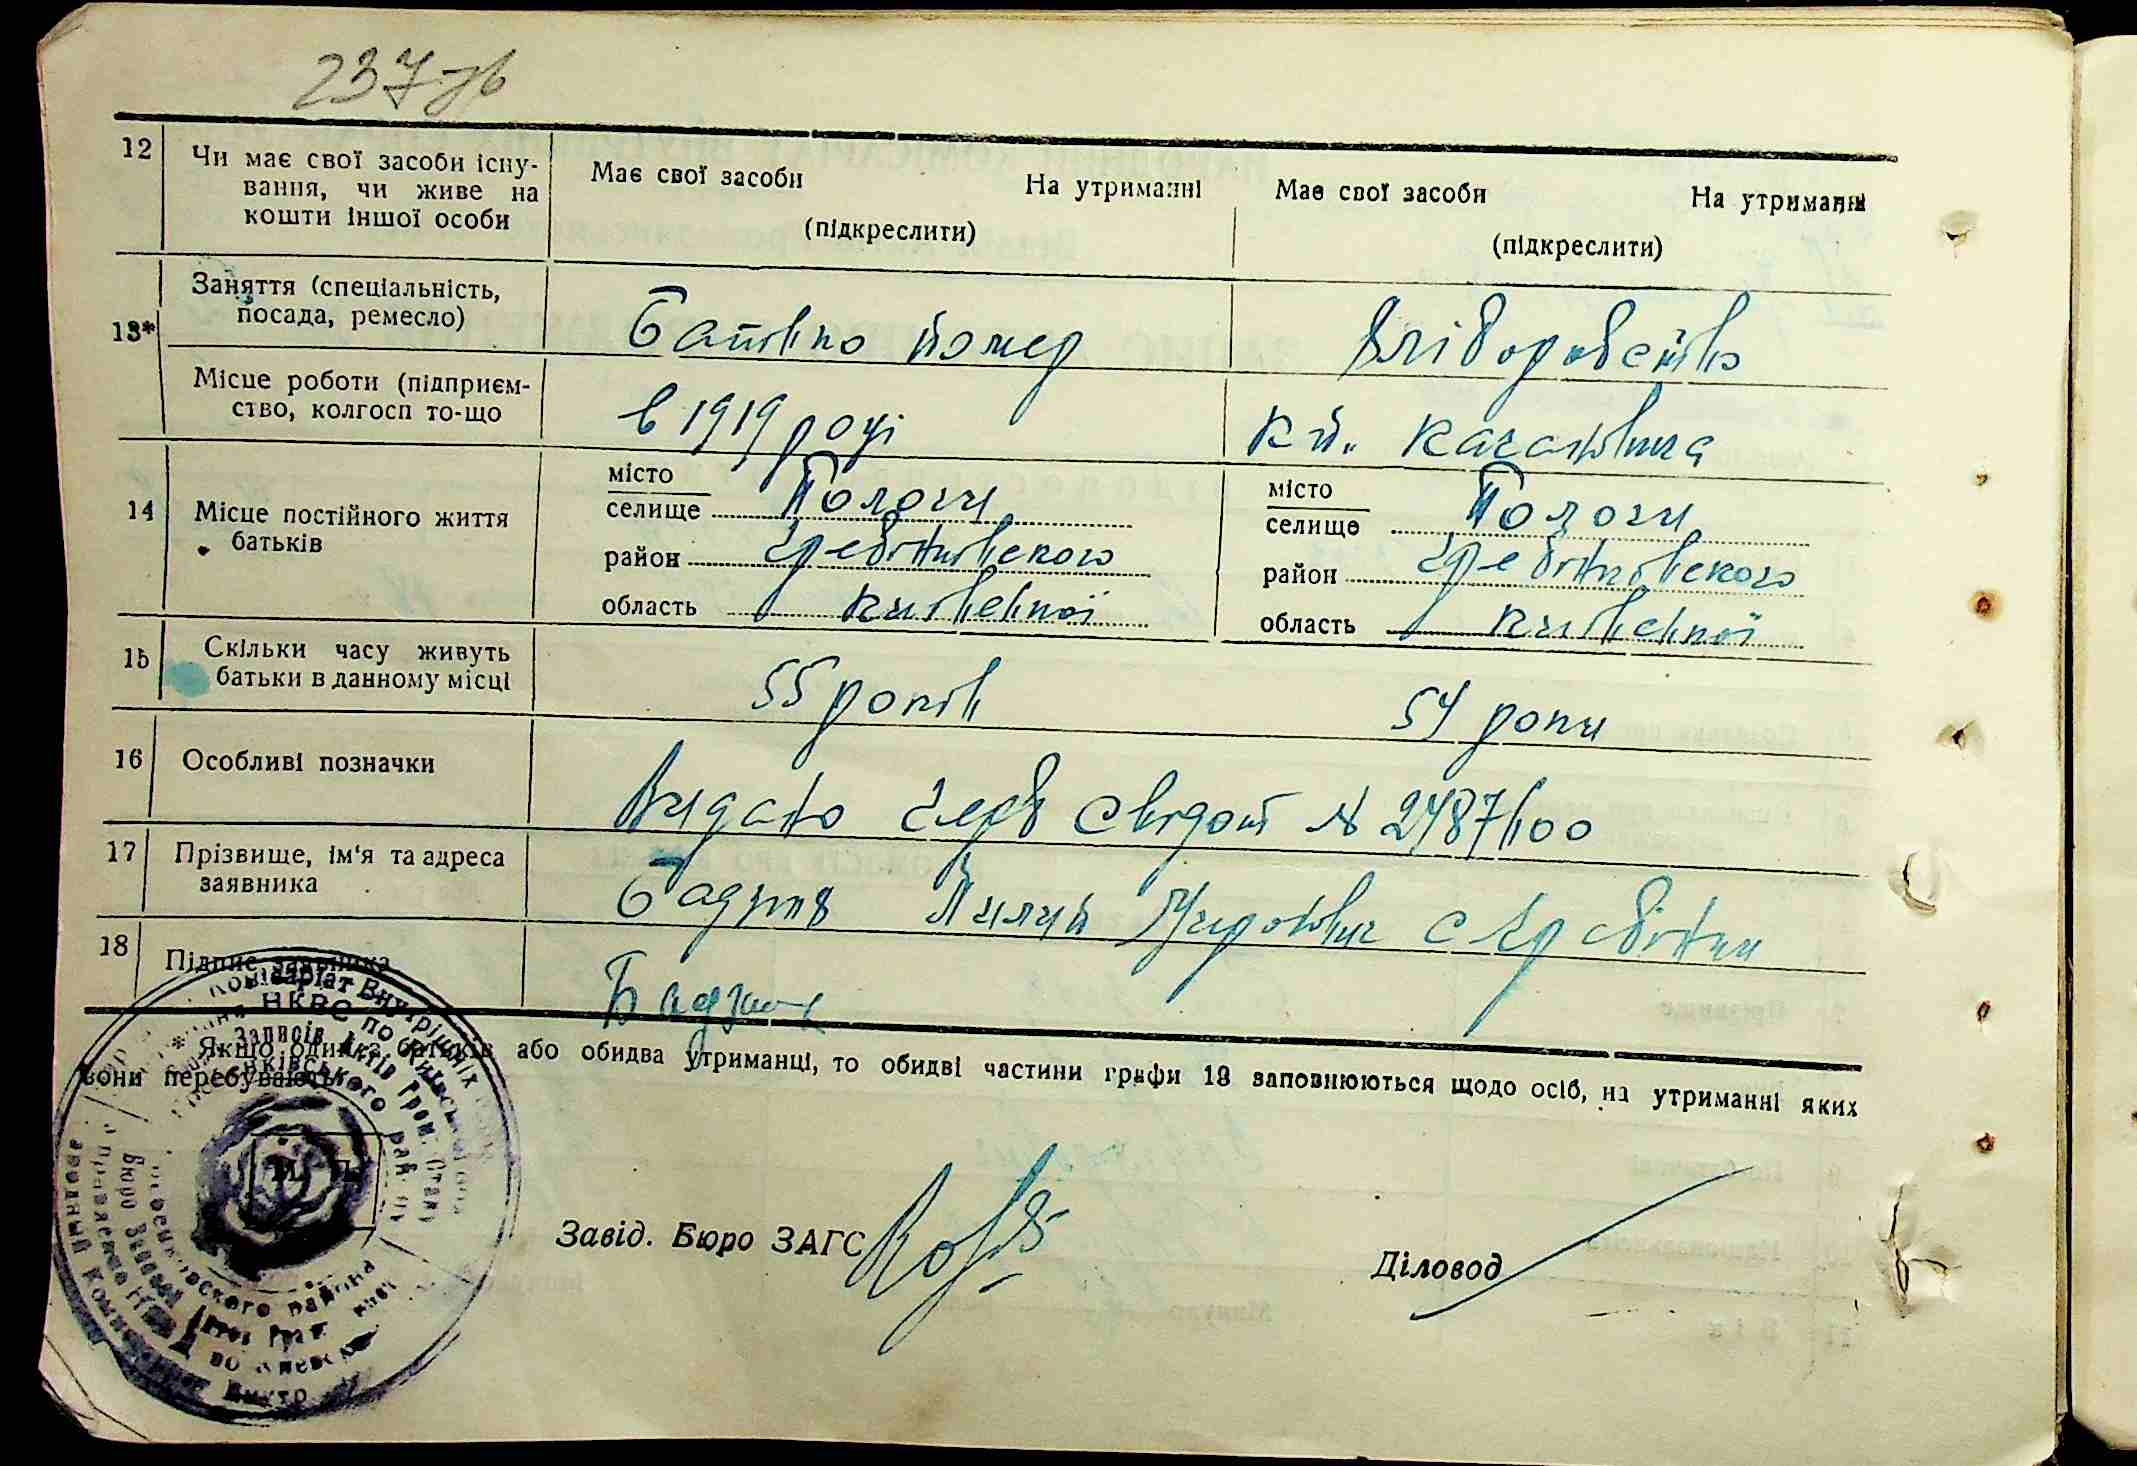 237 зв
12 Чи має свої засоби існу-
вання, чи живе на
кошти іншої особи
Має свої засоби На утриманні
(підкреслити)
Має свої засоби На утриманні
(підкреслити)
13* Заняття (спеціальність,
посада, ремесло)
Батько помер
хліборобство
Місце роботи (підприєм-
ство, колгосп то-що
в 1919 році
к. ім. Кагановича
14 Місце постійного життя
батьків
місто
селище Пологи
район Гребінківского
область Київської
місто
селище Пологи
район Гребінківского
область Київської
15 Скільки часу живуть
батьки в данному місці
55 років
54 роки
16 Особливі позначки
Видано черв свідот № 2487/100
17 Прізвище, ім'я та адреса
заявника
Бадзюк Пилип Миронович с Гребінки
18 Підпис заявника
Бадзюк
* Якщо один з батьків або обидва утриманці, то обидві частини графи 13 заповнюються щодо осіб, на утриманні яких
вони перебувають
Завід. Бюро ЗАГС
Діловод